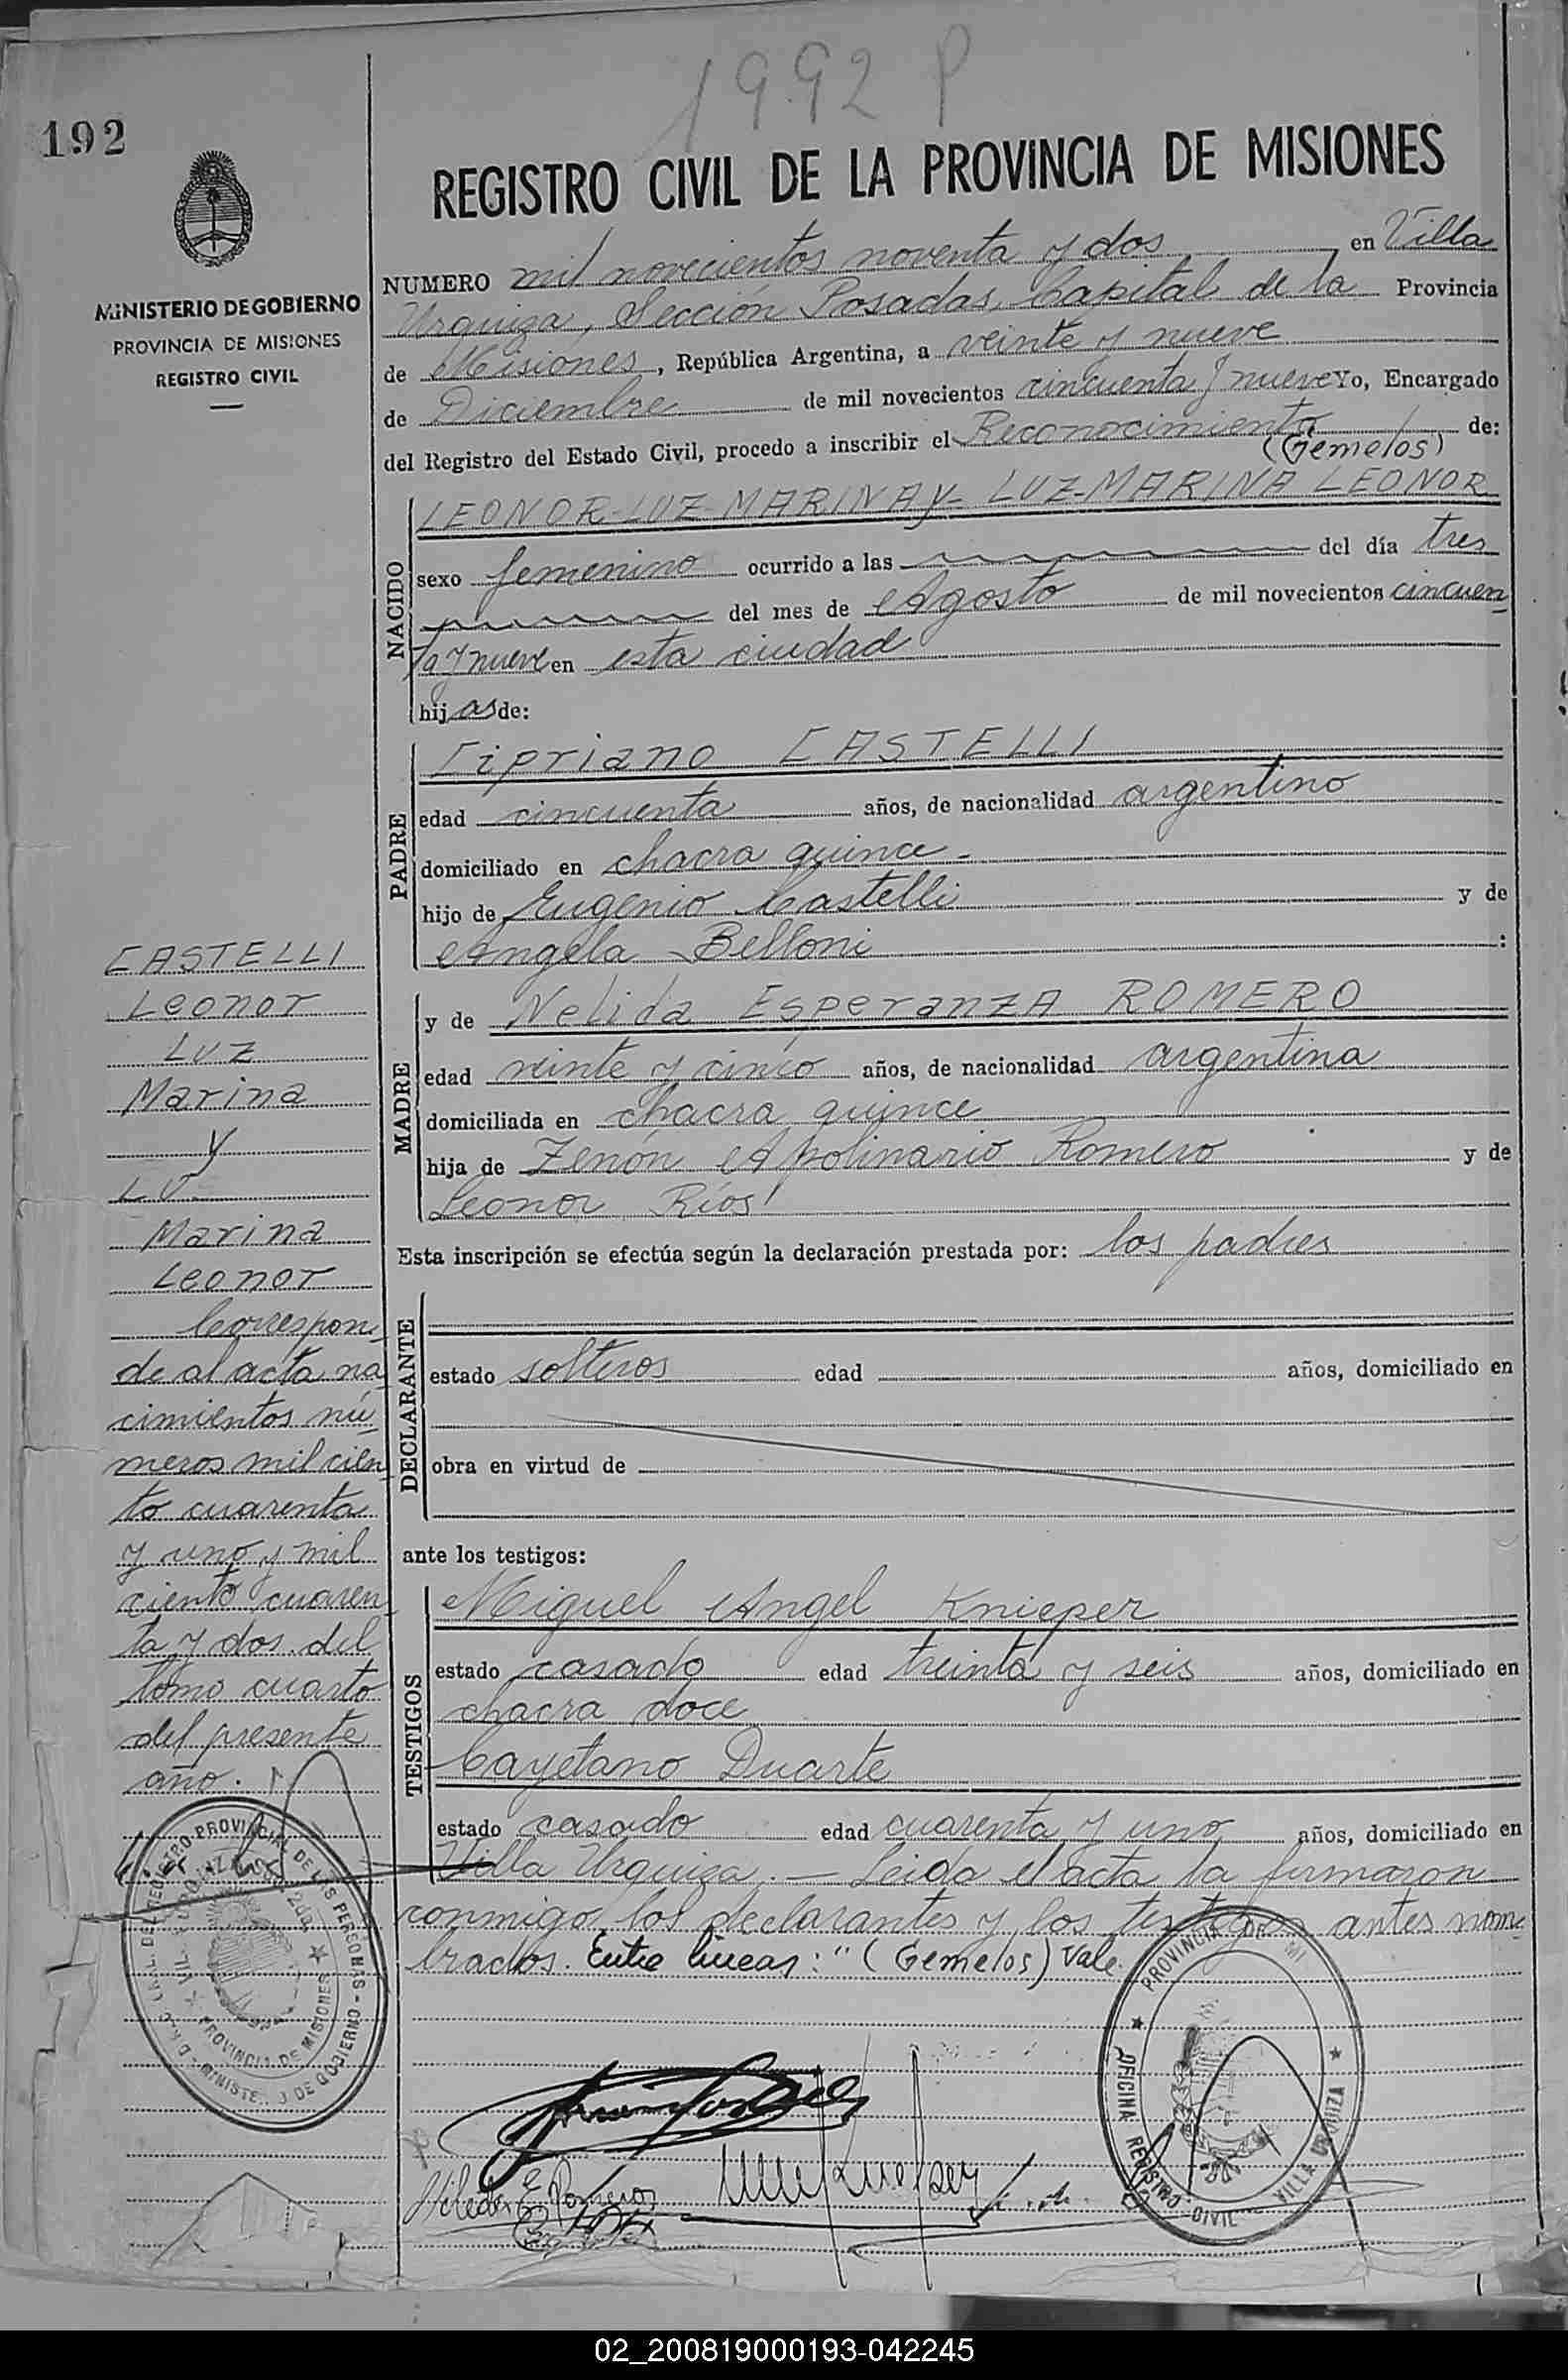 1992 P
192
MINISTERIO DE GOBIERNO
PROVINCIA DE MISIONES
REGISTRO CIVIL
REGISTRO CIVIL DE LA PROVINCIA DE MISIONES
NUMERO mil novecientos noventa y dos, en Villa
Urquiza, Sección Posadas, Capital de la Provincia
de Misiones, República Argentina, a veinte y nueve
de Diciembre de mil novecientos cincuenta y nueve Yo, Encargado
del Registro del Estado Civil, procedo a inscribir el Reconocimiento de:
(Gemelos)
NACIDO
LEONOR-LUZ-MARINA y- LUZ-MARINA LEONOR
sexo femenino ocurrido a las del día tres
del mes de Agosto de mil novecientos cincuen
ta y nueve en esta ciudad
hijas de:
PADRE
Cipriano CASTELLI
edad cincuenta años, de nacionalidad argentino
domiciliado en chacra quince-
hijo de Eugenio Castelli y de
Angela Belloni :
MADRE
y de Nelida Esperanza ROMERO
edad veinte y cinco años, de nacionalidad argentina
domiciliada en chacra quince
hija de Zenón Apolinario Romero y de
Leonor Ríos
Esta inscripción se efectúa según la declaración prestada por: los padres
DECLARANTE
estado solteros edad años, domiciliado en
obra en virtud de
ante los testigos:
TESTIGOS
Miguel Angel Knieper
estado casado edad treinta y seis años, domiciliado en
chacra doce
Cayetano Duarte
estado casado edad cuarenta y uno años, domiciliado en
Villa Urquiza.- Leida el acta la firmaron
conmigo los declarantes y los testigos antes nom
brados. Entre líneas: "(Gemelos) Vale.
CASTELLI
Leonor
Luz
Marina
y
LU
Marina
Leonor
Correspon
de al acta na
cimientos nú
meros mil cien
to cuarenta
y uno y mil
ciento cuaren
ta y dos del
tomo cuarto
del presente
año.
REGISTRO PROVINCIAL DE LAS PERSONAS
PROVINCIA DE MISIONES
PROVINCIA DE MI
OFICINA REGISTRO CIVIL VILLA URQUIZA
02_200819000193-042245